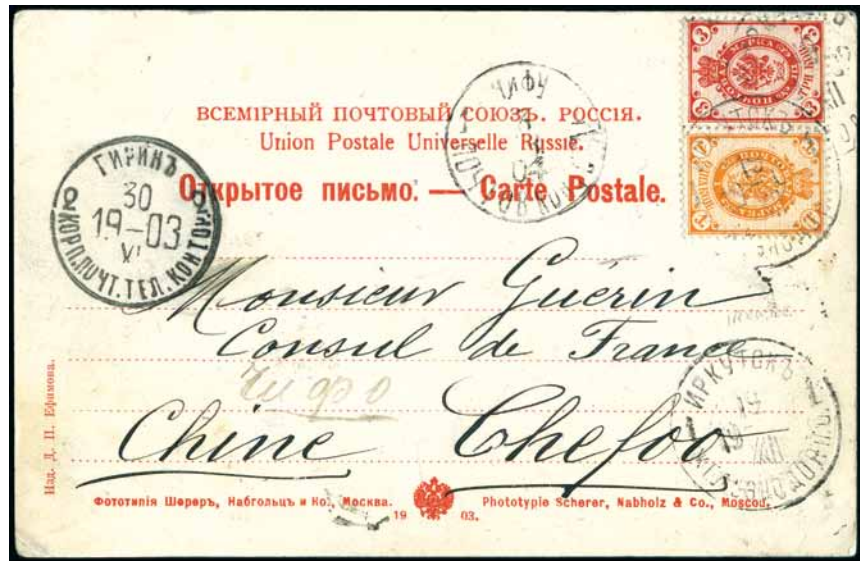 ВСЕМІРНЫЙ ПОЧТОВЫЙ СОЮЗЪ. РОССІЯ.
Union Postale Universelle Russie.
Открытое письмо. — Carte Postale.
3 3
3 3
1 1
1 1
ЧИФУ
04
ГИРИНЪ
30
19-03
XI
КОРП. ПОЧТ. ТЕЛ. КОНТОРА
Monsieur Guérin
Consul de France
Чифо
Chine Chefoo
ИРКУТСКЪ
1 1
19
19
XII
Изд. Д. П. Ефимова.
Фототипія Шереръ, Набгольцъ и Ко., Москва. 19 03. Phototypie Scherer, Nabholz & Co., Moscou.